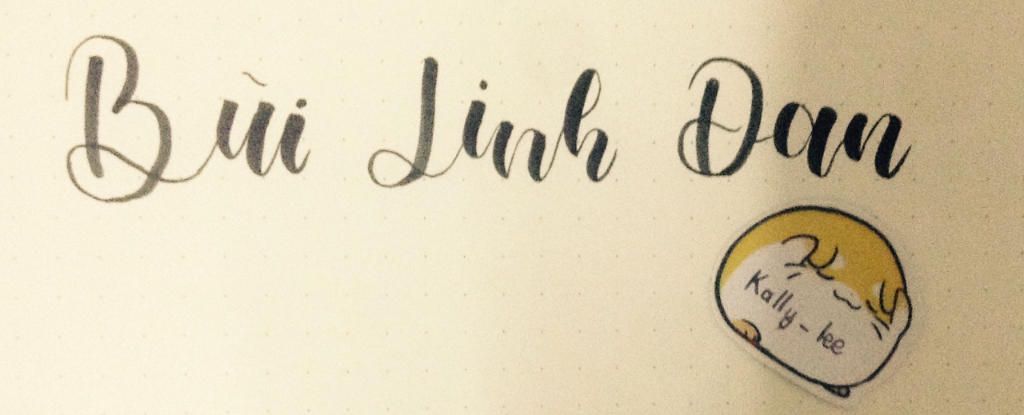 Bùi Linh Đan
Kally-kee